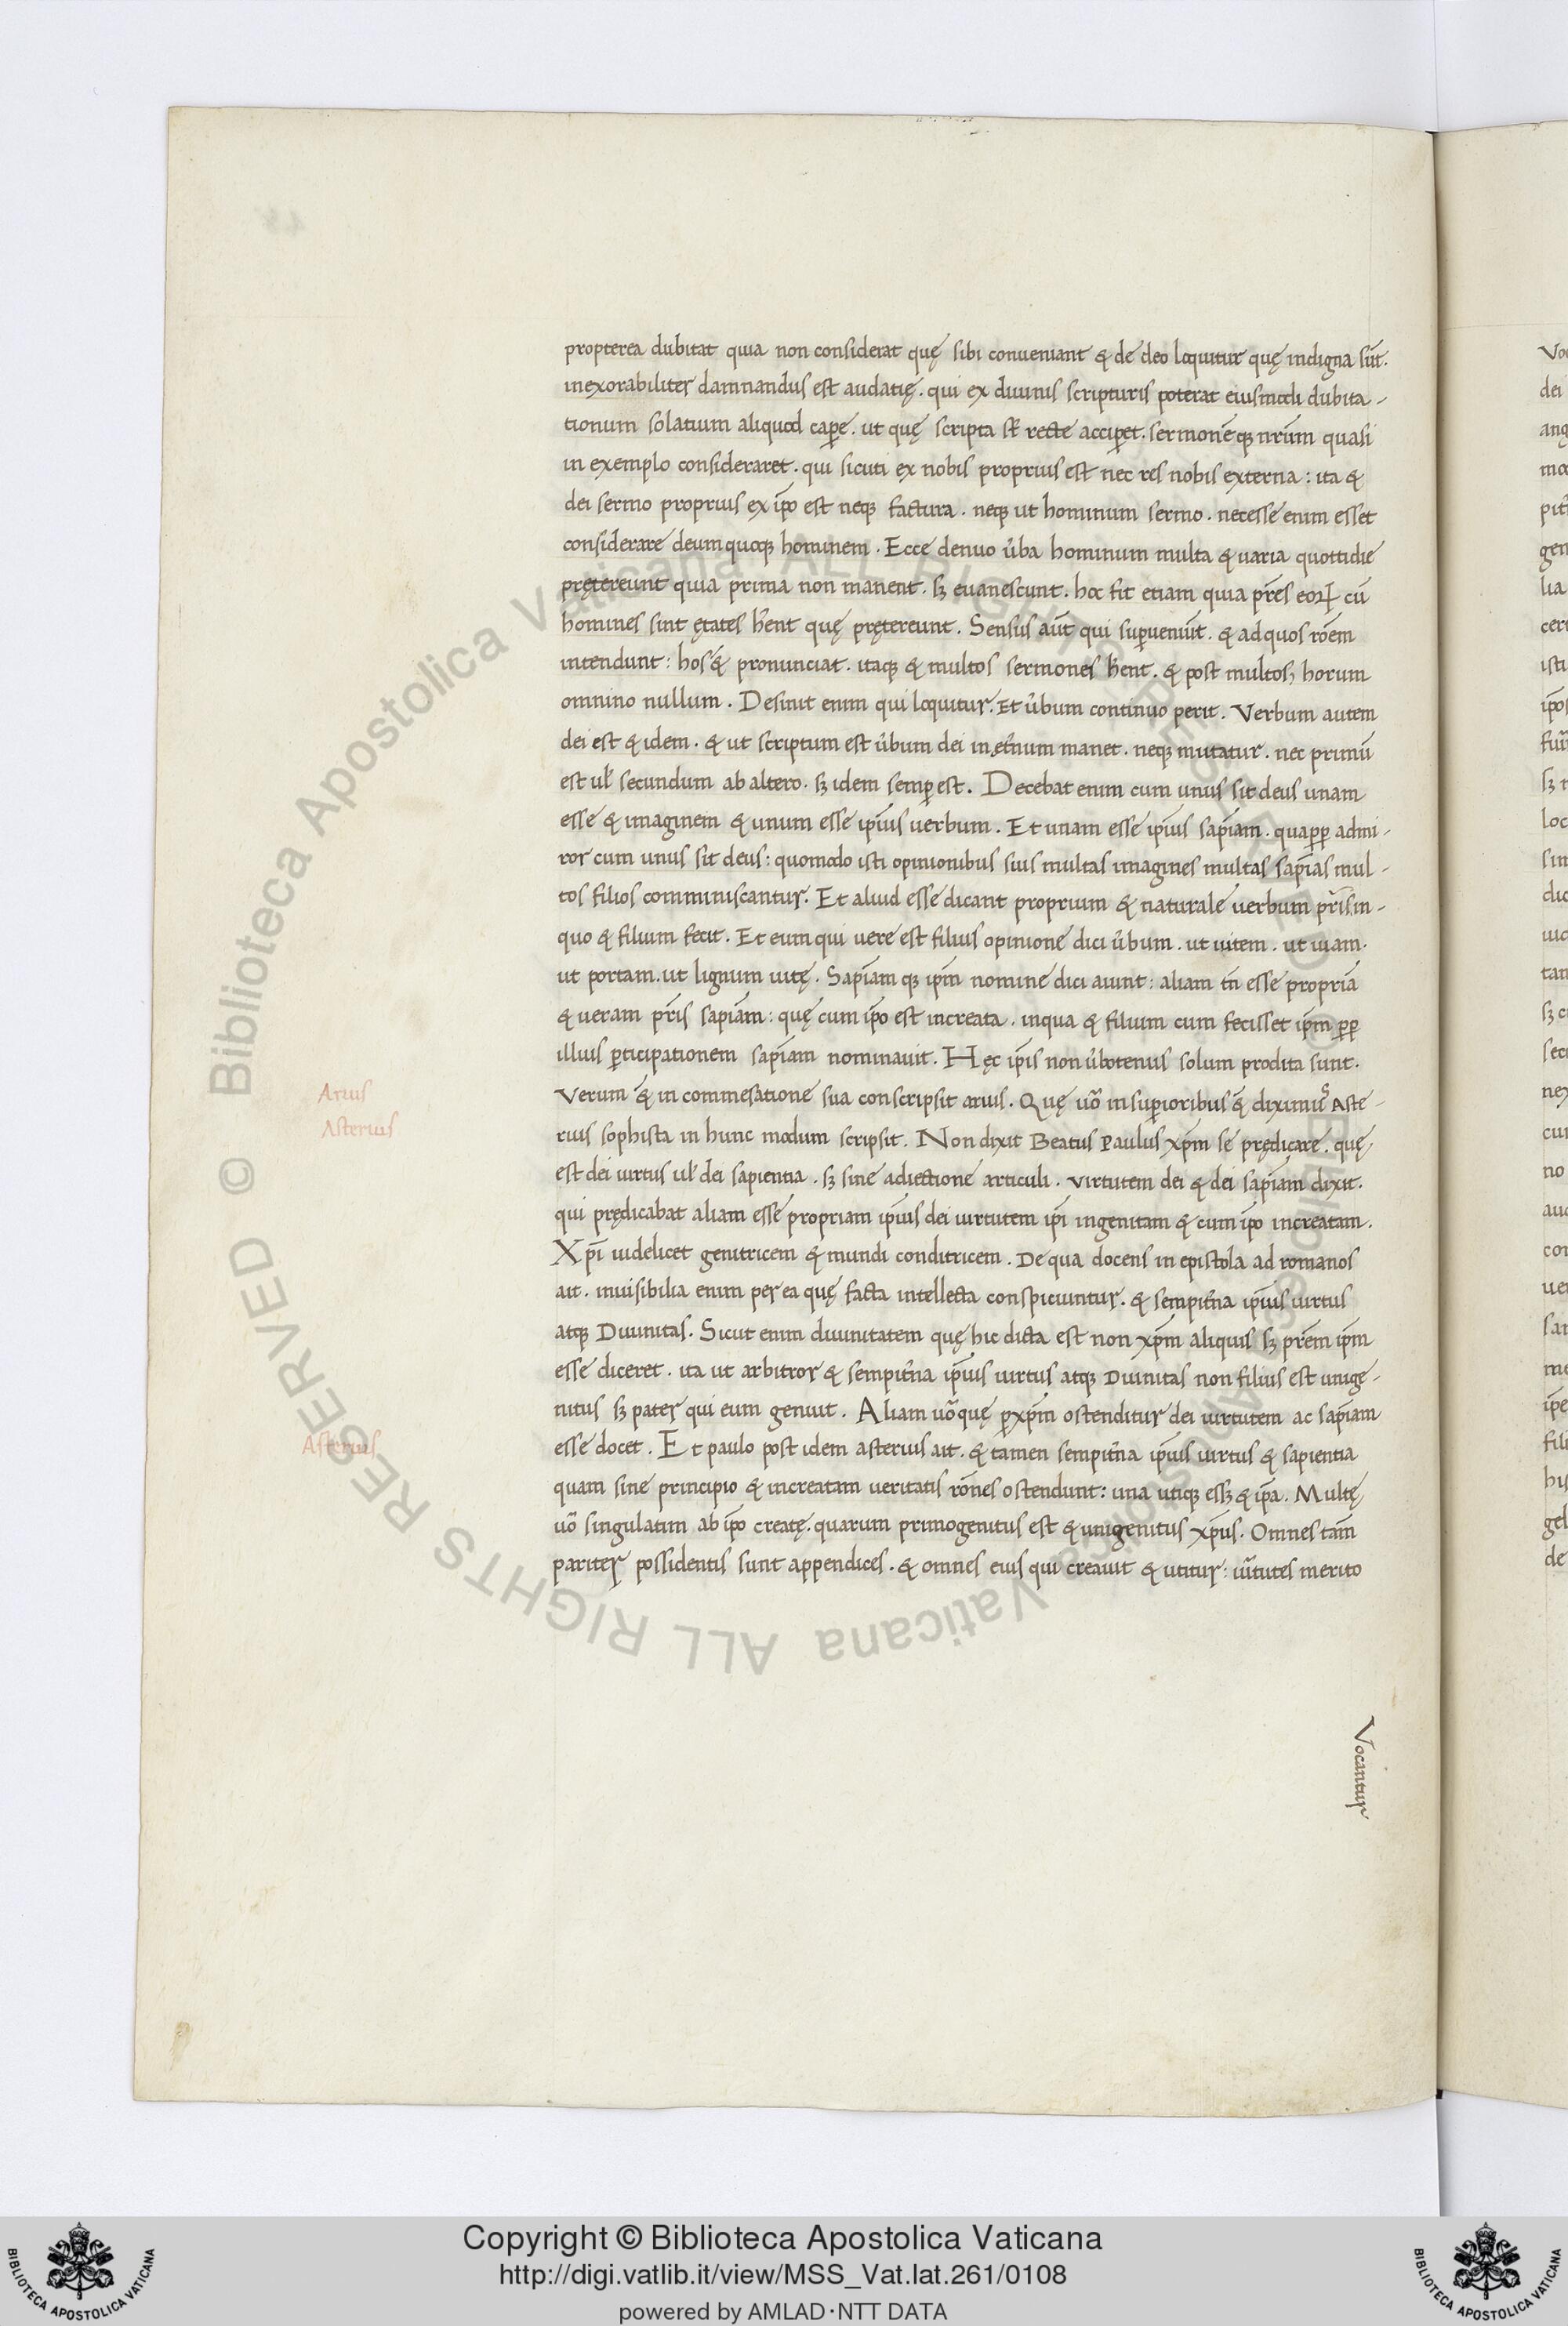 propterea dubitat quia non considerat quę sibi conueniant & de deo loquitur quę indigna sūt.
inexorabiliter damnandus est audatię. qui ex diuinis scripturis poterat eiusmodi dubita-
tionum solatium aliquod capere. ut quę scripta st̄ recte acciperet. sermonēq; nrūm quasi
in exemplo consideraret. qui sicuti ex nobis proprius est nec res nobis externa: ita &
dei sermo proprius ex ip̄o est neq; factura. neq; ut hominum sermo. necesse enim esset
considerare deum quoq; hominem. Ecce denuo ūba hominum multa & uaria quottidie
prętereunt quia prima non manent. sȝ euanescunt. hoc fit etiam quia pr̄es eoꝝ cū
homines sint ętates hēnt quę prętereunt. Sensus aūt qui superueniūt. & ad quos rōem
intendunt: hos & pronunciat. itaq; & multos sermones hēnt. & post multos horum
omnino nullum. Desinit enim qui loquitur. Et ūbum continuo perit. Verbum autem
dei est & idem. & ut scriptum est ūbum dei in ęt̄num manet. neq; mutatur. nec primū
est uƚ secundum ab altero. sȝ idem semper est. Decebat enim cum unus sit deus unam
esse & imaginem & unum esse ip̄ius uerbum. Et unam esse ip̄ius sap̄iam. quapp̄ admi-
ror cum unus sit deus: quomodo isti opinionibus suis multas imagines multas sap̄ias mul-
tos filios comminiscantur. Et aliud esse dicant proprium & naturale uerbum pr̄is in-
quo & filium fecit. Et eum qui uere est filius opinione dici ūbum. ut uitem. ut uiam.
ut portam. ut lignum uitę. Sap̄iam q; ip̄m nomine dici aiunt: aliam tn̄ esse propriā
& ueram pr̄is sap̄iam: quę cum ip̄o est increata. inqua & filium cum fecisset ip̄m pp̄
illius participationem sap̄iam nominauit. Hęc ip̄is non ūbotenus solum prodita sunt.
Arius
Verum & in commesatione sua conscripsit arius. Quę uō in superioribus & diximus Aste-
Asterius
rius sophista in hunc modum scripsit. Non dixit Beatus Paulus xp̄m se prędicare. quę
est dei uirtus uƚ dei sapientia. sȝ sine adiectione articuli. virtutem dei & dei sap̄iam dixit.
qui prędicabat aliam esse propriam ip̄ius dei uirtutem ip̄i ingenitam & cum ip̄o increatam.
Xp̄i uidelicet genitricem & mundi conditricem. De qua docens in epistola ad romanos
ait. inuisibilia enim per ea quę facta intellecta conspiciuntur. & sempit̄na ip̄ius uirtus
atq; Diuinitas. Sicut enim diuinitatem quę hic dicta est non xp̄m aliquis sȝ pr̄em ip̄m
esse diceret. ita ut arbitror & sempit̄na ip̄ius uirtus atq; Diuinitas non filius est unige-
nitus sȝ pater qui eum genuit. Aliam uō quę per xp̄m ostenditur dei uirtutem ac sap̄iam
Asterius
esse docet. Et paulo post idem asterius ait. & tamen sempit̄na ip̄ius uirtus & sapientia
quam sine principio & increatam ueritatis rōnes ostendunt: una utiq; essȝ & ip̄a. Multę
uō singulatim ab ip̄o creatę. quarum primogenitus est & unigenitus xp̄us. Omnes tam̄
pariter possidentis sunt appendices. & omnes eius qui creauit & utitur: ūtutes merito
Vocantur
© Biblioteca Apostolica Vaticana ALL RIGHTS RESERVED
© Biblioteca Apostolica Vaticana ALL RIGHTS RESERVED
Copyright © Biblioteca Apostolica Vaticana
http://digi.vatlib.it/view/MSS_Vat.lat.261/0108
powered by AMLAD·NTT DATA
BIBLIOTECA APOSTOLICA VATICANA
BIBLIOTECA APOSTOLICA VATICANA